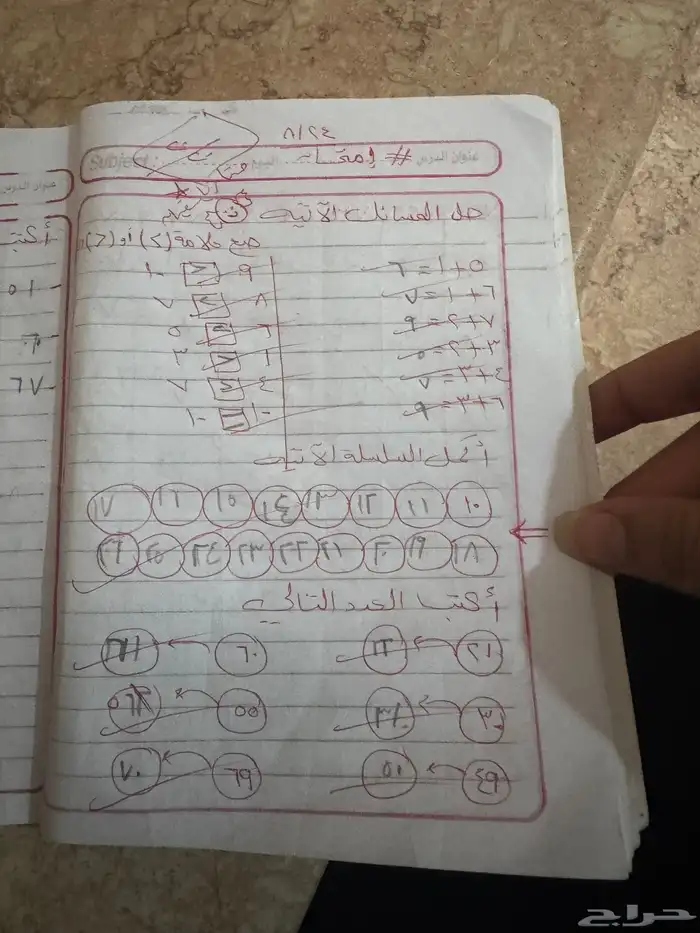 ٨/٢٤
Subject : عنوان الدرس # إمتحان اليوم
حل المسائل الآتية
ضع علامة (<) أو (>)
٥+١=٦
٦+١=٧
٧+٢=٩
٣+٢=٥
٤+٣=٧
٦+٣=٩
٩ ١٠
٨ ٧
٦ ٥
٤ ٧
١٠ = ١٠
أكمل السلسلة الآتية
١٠ ١١ ١٢ ١٣ ١٤ ١٥ ١٦ ١٧
١٨ ١٩ ٢٠ ٢١ ٢٢ ٢٣ ٢٤ ٢٥ ٢٦
أكتب العدد التالي
٢١ ٢٢ ٦٠ ٦١
٣٠ ٣١ ٥٥ ٥٦
٤٩ ٥٠ ٦٩ ٧٠
عنوان الدرس
أكتب
حراج